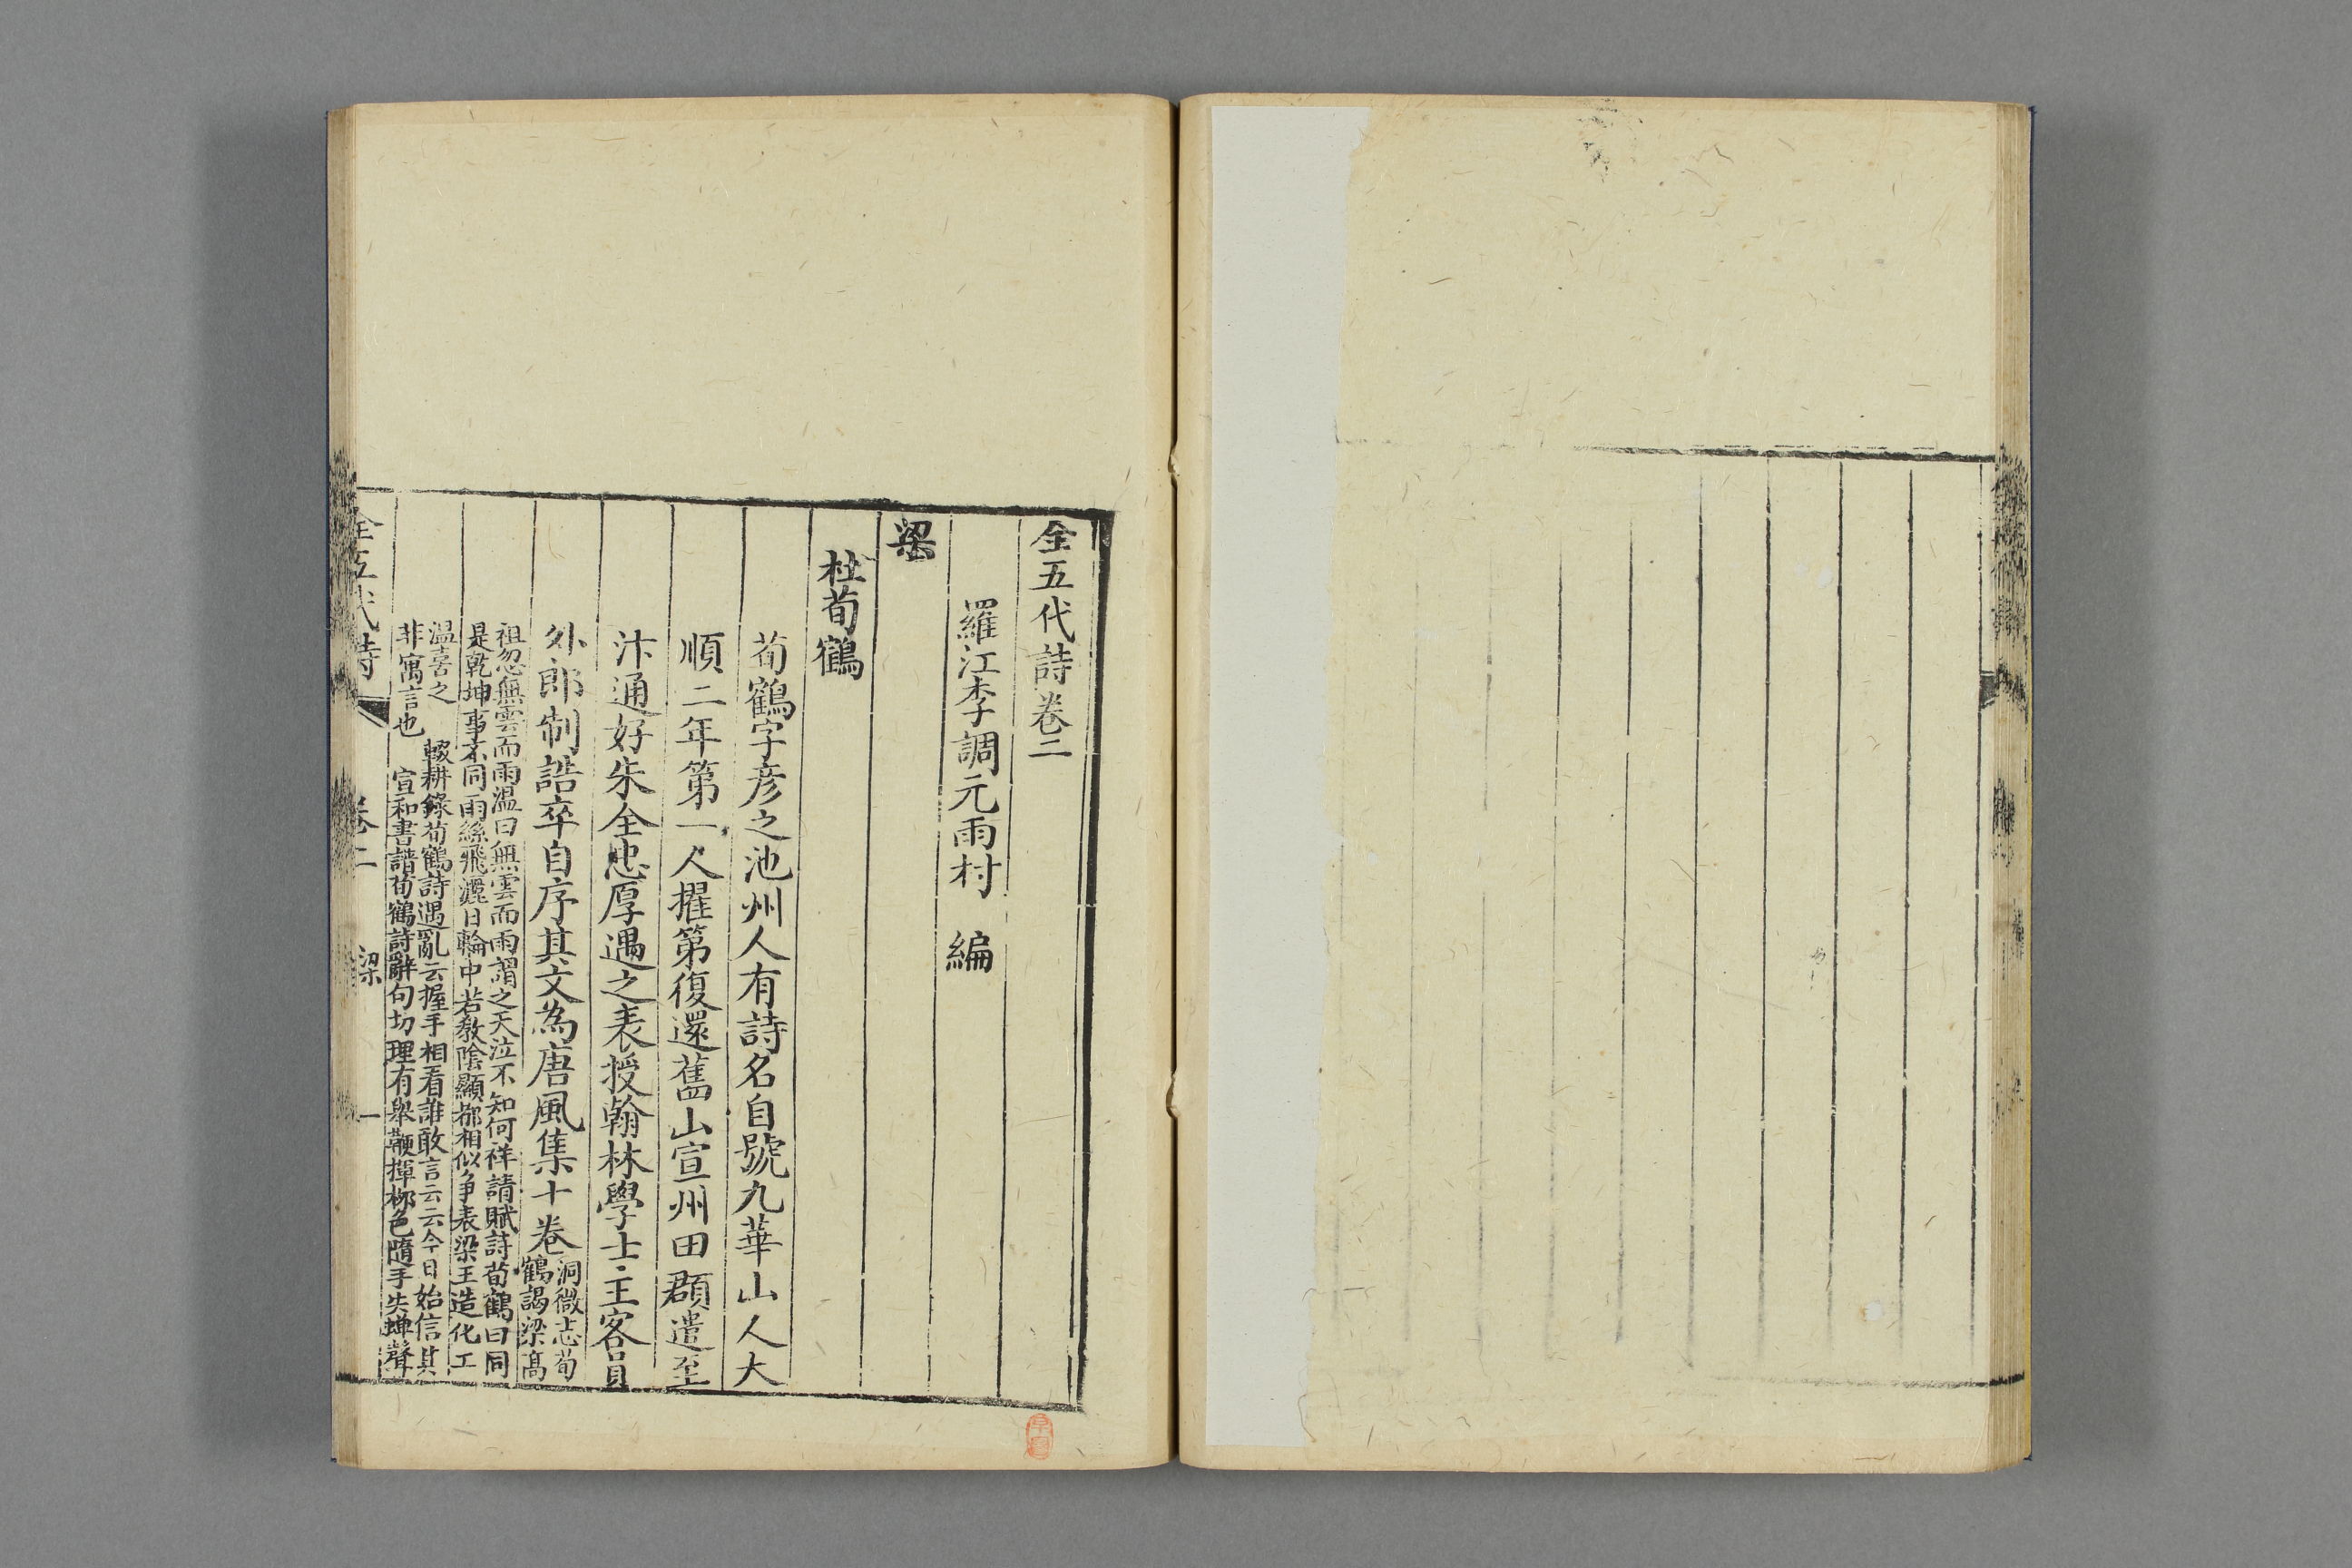 全五代詩卷二
羅江李調元雨村 編
梁
杜荀鶴
荀鶴字彥之池州人有詩名自號九華山人大
順二年第一人擢第復還舊山宣州田頵遣至
汴通好朱全忠厚遇之表授翰林學士主客員
外郎制誥卒自序其文為唐風集十卷
洞微志荀
鶴謁梁高
祖忽無雲而雨温曰無雲而雨謂之天泣不知何祥請賦詩荀鶴曰同
是乾坤事不同雨絲飛灑日輪中若教陰顯都相似爭表梁王造化工
温喜之 輟耕錄荀鶴詩遇亂云握手相看誰敢言云云今日始信其
非寓言也 宣和書譜荀鶴詩辭句切理有舉鞭揮柳色隨手失蟬聲
全五代詩 卷二 梁 一